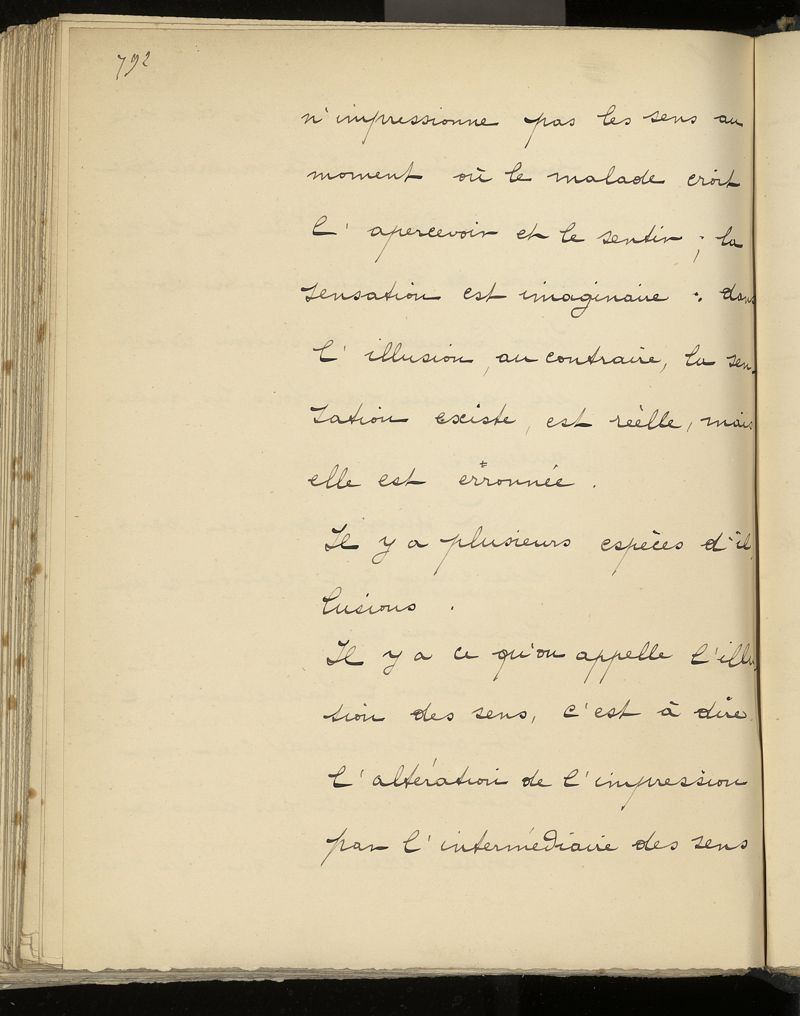 792
n'impressionne pas les sens au
moment où le malade croit
l'apercevoir et le sentir ; la
sensation est imaginaire : dans
l'illusion, au contraire, la sen-
sation existe, est réelle, mais
elle est erronnée.
Il y a plusieurs espèces d'il-
lusions.
Il y a ce qu'on appelle l'illu-
sion des sens, c'est à dire
l'altération de l'impression
par l'intermédiaire des sens